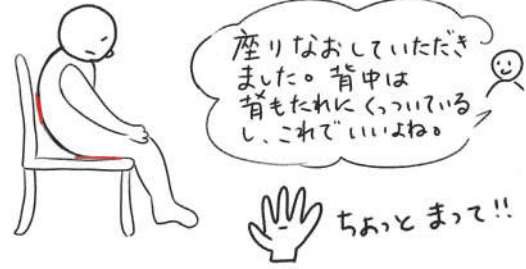 座りなおしていただき
ました。背中は
背もたれにくっついている
し、これでいいよね。
ちょっとまって!!